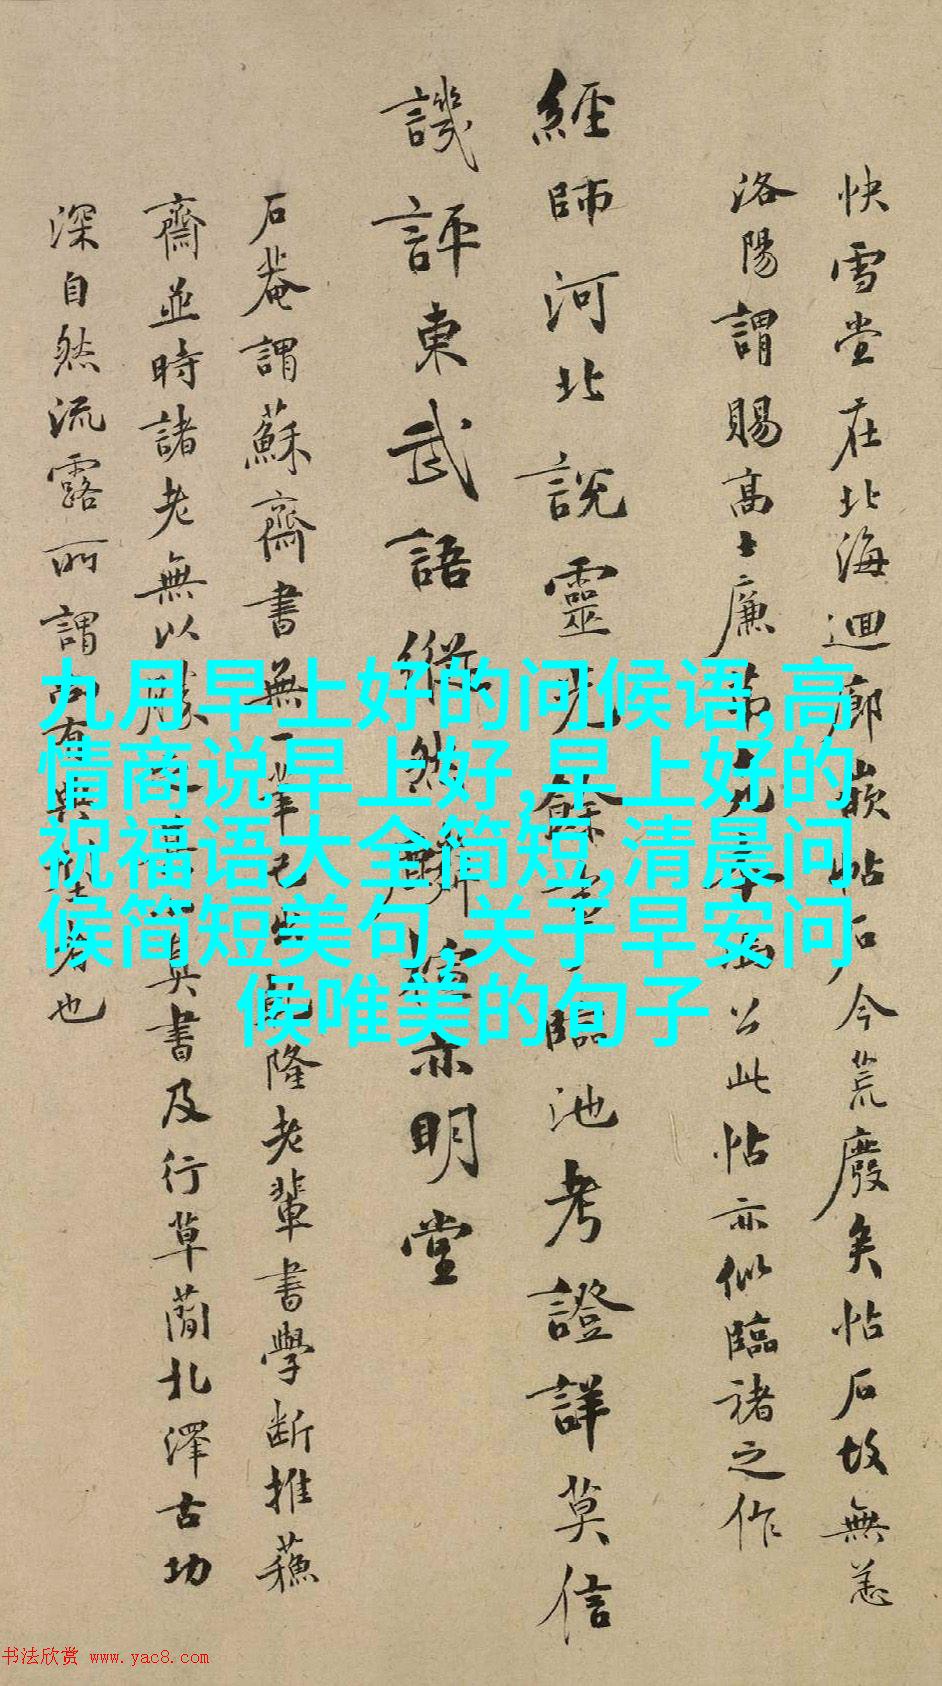 快雪堂在北海迴廊嵌帖石今荒廢矣帖石故無恙
洛陽謂賜高士廉茀此帖亦似臨褚之作
經師河北說靈光餘臨池考證詳莫信
譏評東武語縱然鱗亦明堂
石菴謂蘇齋書無一筆隆老輩書學斷推蘓
齋並時諸老無以勝真書及行草蘭北澤古功
深自然流露所謂也
九月早上好的问候语,高
情商说早上好,早上好的
祝福语大全简短,清晨问
候简短美句,关于早安问
候唯美的句子
书法欣赏 www.yac8.com